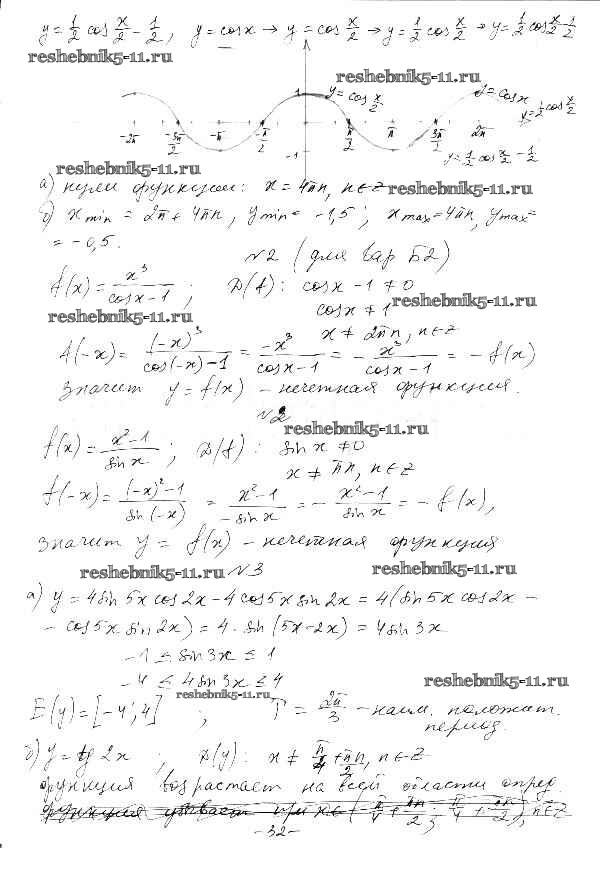 y = 1/2 cos x/2 − 1/2, y = cos x → y = cos x/2 → y = 1/2 cos x/2 → y = 1/2 cos x/2 − 1/2
reshebnik5-11.ru
reshebnik5-11.ru
1 y = cos x/2 y = cos x
y = 1/2 cos x/2
-2π -3π/2 -π -π/2 π/2 π 3π/2 2π
-1 y = 1/2 cos x/2 − 1/2
reshebnik5-11.ru
а) нули функции: x = 4πn, n∈Z reshebnik5-11.ru
б) x min = 2π + 4πn, y min = -1,5; x max = 4πn, y max =
= -0,5.
№2 (для вар Б2)
f(x) = x³/(cos x − 1); D(f): cos x − 1 ≠ 0
cos x ≠ 1 reshebnik5-11.ru
reshebnik5-11.ru
x ≠ 2πn, n∈Z
f(-x) = (-x)³/(cos(-x) − 1) = -x³/(cos x − 1) = − x³/(cos x − 1) = − f(x)
значит y = f(x) – нечетная функция.
№2
reshebnik5-11.ru
f(x) = (x² − 1)/sin x; D(f): sin x ≠ 0
x ≠ πn, n∈Z
f(-x) = ((-x)² − 1)/sin(-x) = (x² − 1)/(−sin x) = − (x² − 1)/sin x = − f(x),
значит y = f(x) – нечетная функция
reshebnik5-11.ru №3 reshebnik5-11.ru
а) y = 4 sin 5x cos 2x − 4 cos 5x sin 2x = 4(sin 5x cos 2x −
− cos 5x sin 2x) = 4 · sin(5x − 2x) = 4 sin 3x
-1 ≤ sin 3x ≤ 1
-4 ≤ 4 sin 3x ≤ 4
reshebnik5-11.ru
reshebnik5-11.ru
E(y) = [-4; 4]; T = 2π/3 – наим. положит.
период.
б) y = tg 2x; D(y): x ≠ π/4 + πn/2, n∈Z
функция возрастает на всей области опред.
функция убывает при x∈(
-32-